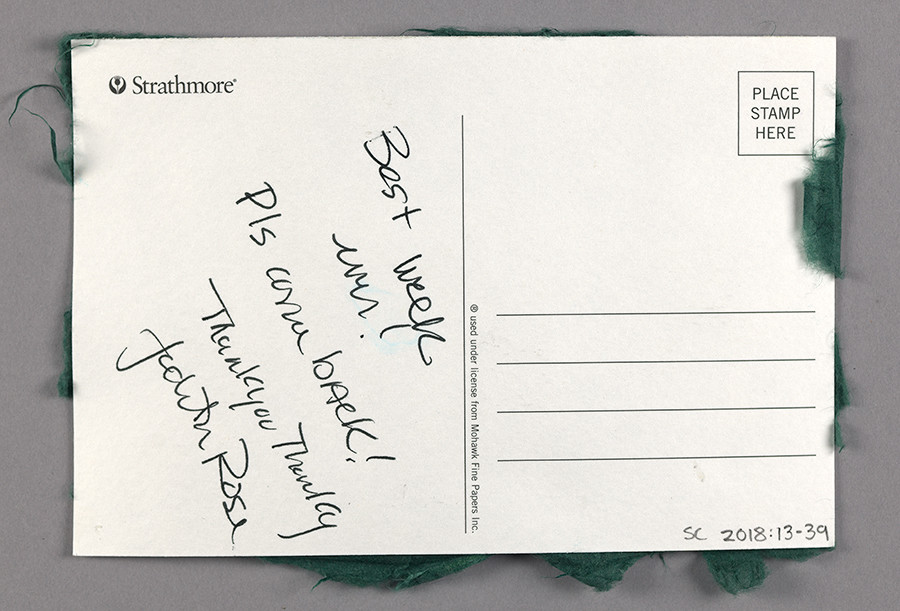 Strathmore®
PLACE
STAMP
HERE
Best week
ever!
Pls come back!
Thankyou Thankyou
Judith Rose
® used under license from Mohawk Fine Papers Inc.
SC 2018:13-39